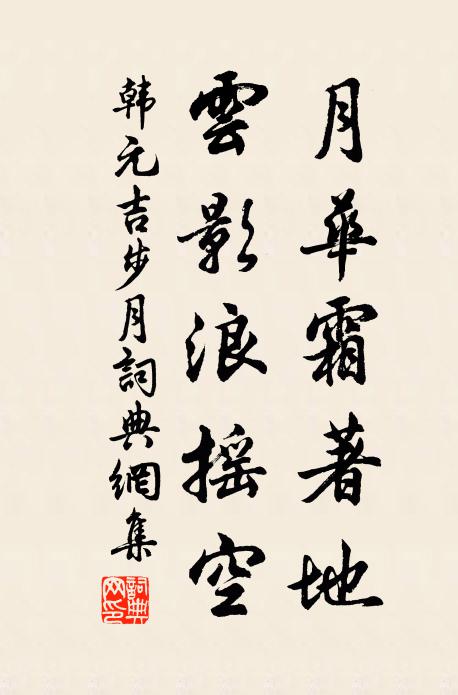 月華霜著地
雲影浪摇空
韩元吉步月詞典網集
詞典網印